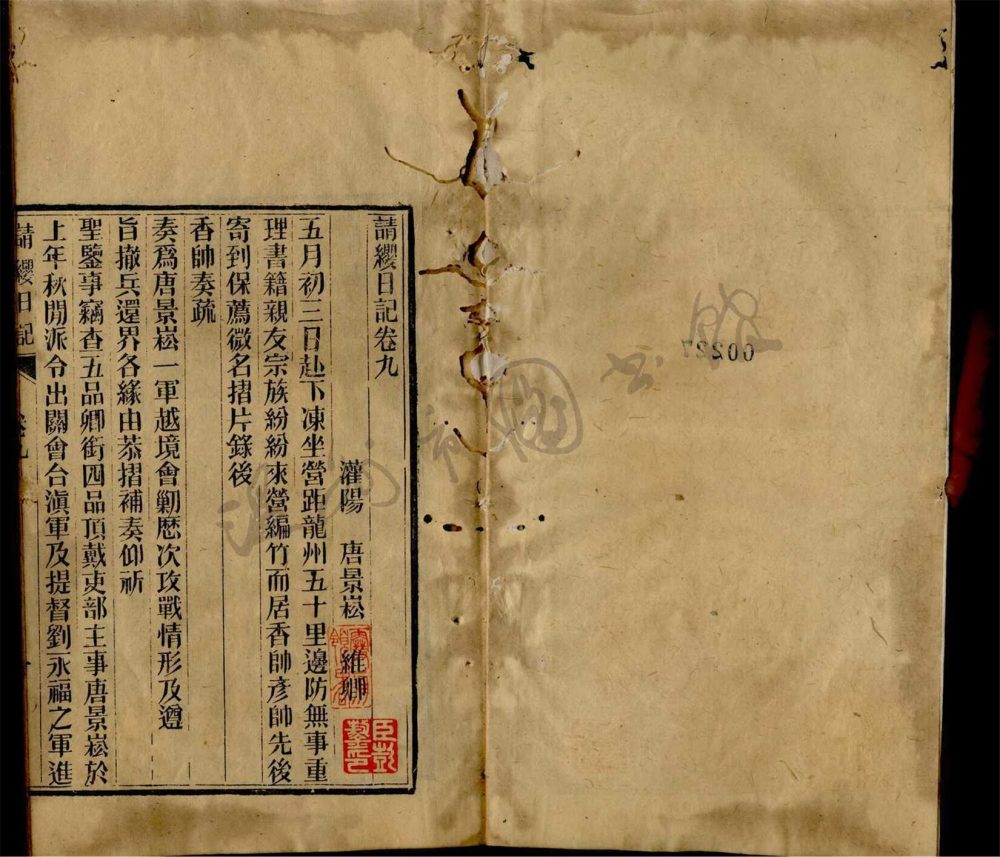 請纓日記卷九
灌陽　唐景崧　維卿
五月初三日赴下凍坐營距龍州五十里邊防無事重
理書籍親友宗族紛紛來營編竹而居香帥彥帥先後
寄到保薦微名摺片錄後
香帥奏疏
奏爲唐景崧一軍越境會勦歷次攻戰情形及遵
旨撤兵還界各緣由恭摺補奏仰祈
聖鑒事竊查五品卿銜四品頂戴吏部主事唐景崧於
上年秋閒派令出關會合滇軍及提督劉永福之軍進
請纓日記
卷九
00227